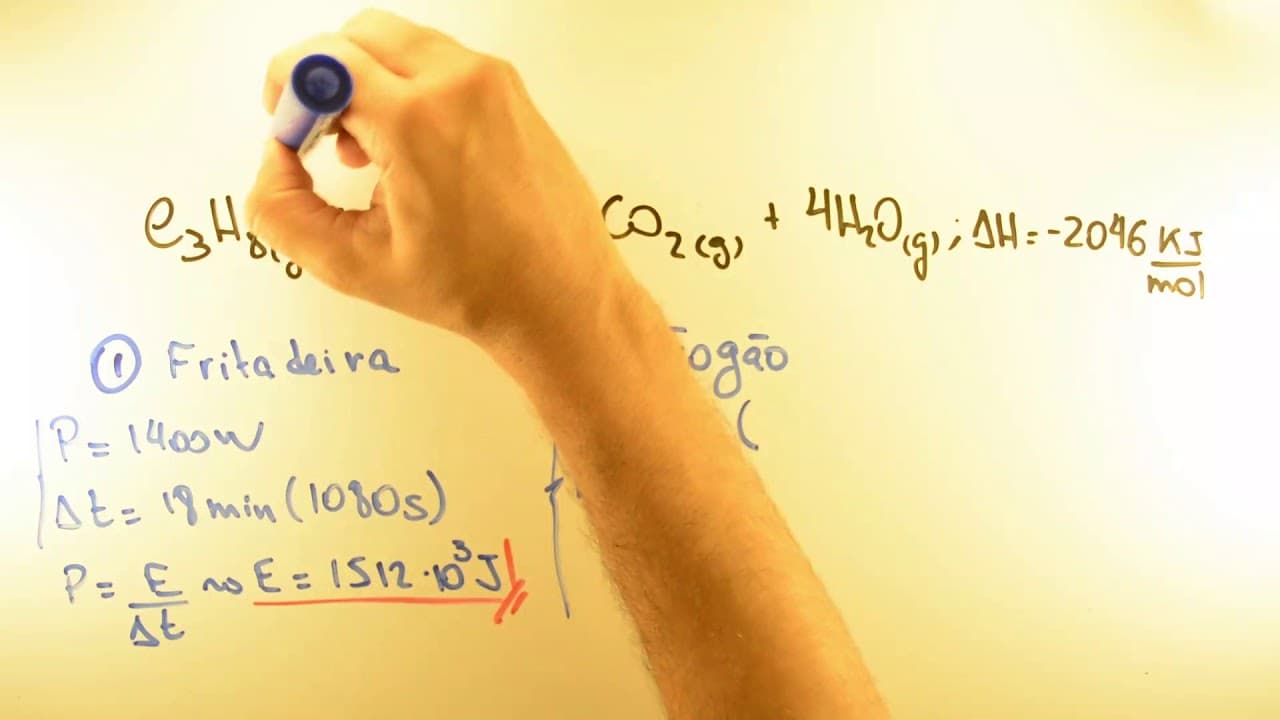 C₃H₈(g CO₂(g) + 4H₂O(g); ΔH = -2046 KJ/mol
① Fritadeira ogão
P = 1400W (
Δt = 18 min (1080s)
P = E/Δt ~> E = 1512·10³J